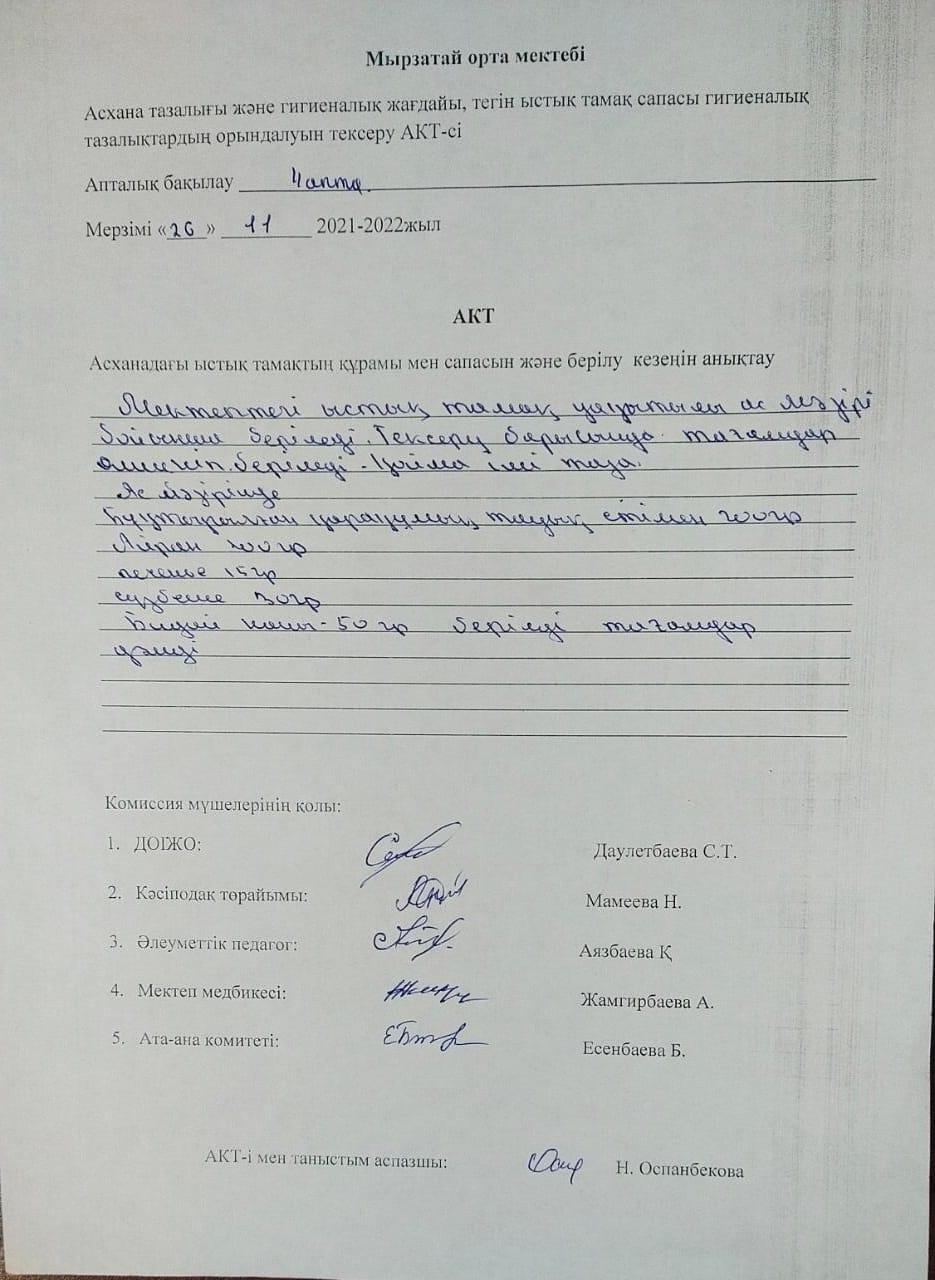 Мырзатай орта мектебі
Асхана тазалығы және гигиеналық жағдайы, тегін ыстық тамақ сапасы гигиеналық
тазалықтардың орындалуын тексеру АКТ-сі
Апталық бақылау 4 апта.
Мерзімі «26» 11 2021-2022жыл
АКТ
Асханадағы ыстық тамақтың құрамы мен сапасын және берілу кезеңін анықтау
Мектептегі ыстық тамақ уақытылы ас мәзірі
бойынша беріледі. Тексеру барысында тағамдар
беріледі. Қойма іші таза.
Ас мәзірінде
қарақұмық тауық етімен 200гр
Айран 200гр
печенье 15гр
сүзбеше 30гр
Бидай наны - 50 гр беріледі тағамдар
дәмді
Комиссия мүшелерінің қолы:
1. ДОІЖО: Даулетбаева С.Т.
2. Кәсіподақ төрайымы: Мамеева Н.
3. Әлеуметтік педагог: Аязбаева Қ
4. Мектеп медбикесі: Жамгирбаева А.
5. Ата-ана комитеті: Есенбаева Б.
АКТ-і мен таныстым аспазшы: Н. Оспанбекова